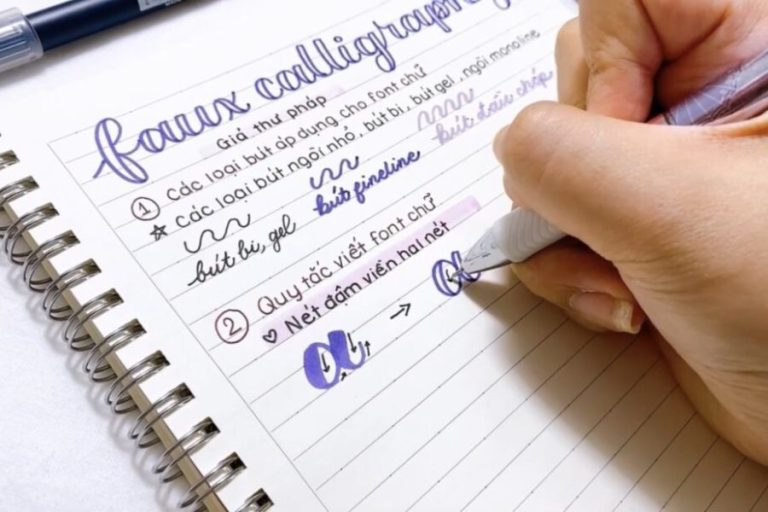 faux calligraphy
Giả thư pháp
① Các loại bút áp dụng cho font chữ
☆ Các loại bút ngòi nhỏ, bút bi, bút gel, ngòi monoline
bút bi, gel bút fineline bút dấu chấp
② Quy tắc viết font chữ
♡ Nét đậm viền hai nét
a → a